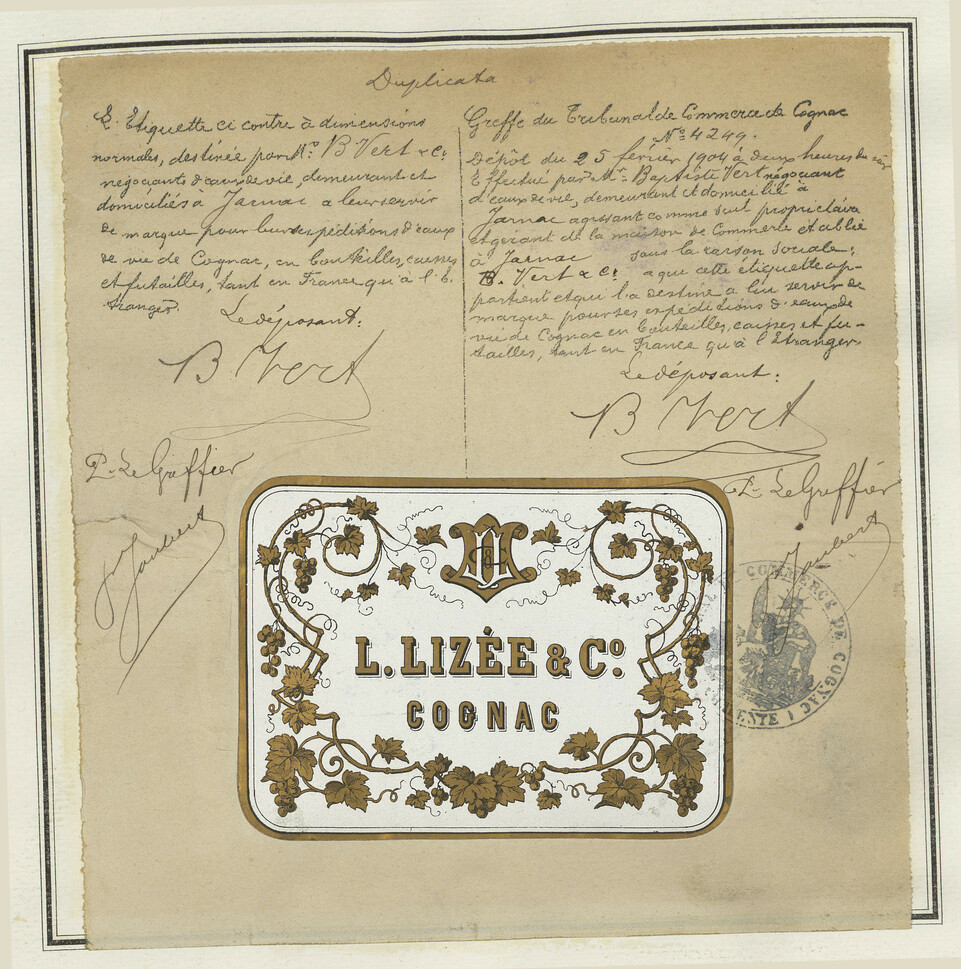 Duplicata
L'Etiquette ci contre à dimensions
normales, destinée par Mrs. B Vert & Cie
négociants d'eaux de vie, demeurant et
domiciliés à Jarnac a leur servir
de marque pour leurs expéditions d'eaux
de vie de Cognac, en bouteilles, caisses
et futailles, tant en France qu'à l'E-
tranger.
Le déposant:
B Vert
P. Le Greffier
Joubert
Greffe du Tribunal de Commerce de Cognac
No. 4249.
Dépôt du 25 février 1904 à deux heures du soir
Effectué par Mr. Baptiste Vert négociant
d'eaux de vie, demeurant et domicilié à
Jarnac agissant comme seul propriétaire
et gérant de la maison de Commerce établie
à Jarnac sous la raison sociale:
B. Vert & Cie. a qui cette étiquette ap-
partient et qui l'a destine a lui servir de
marque pour ses expéditions d'eaux de
vie de Cognac en bouteilles, caisses et fu-
tailles, tant en France qu'à l'Etranger
Le déposant:
B Vert
P. Le Greffier
Joubert
L. LIZÉE & Co
COGNAC
COMMERCE DE COGNAC